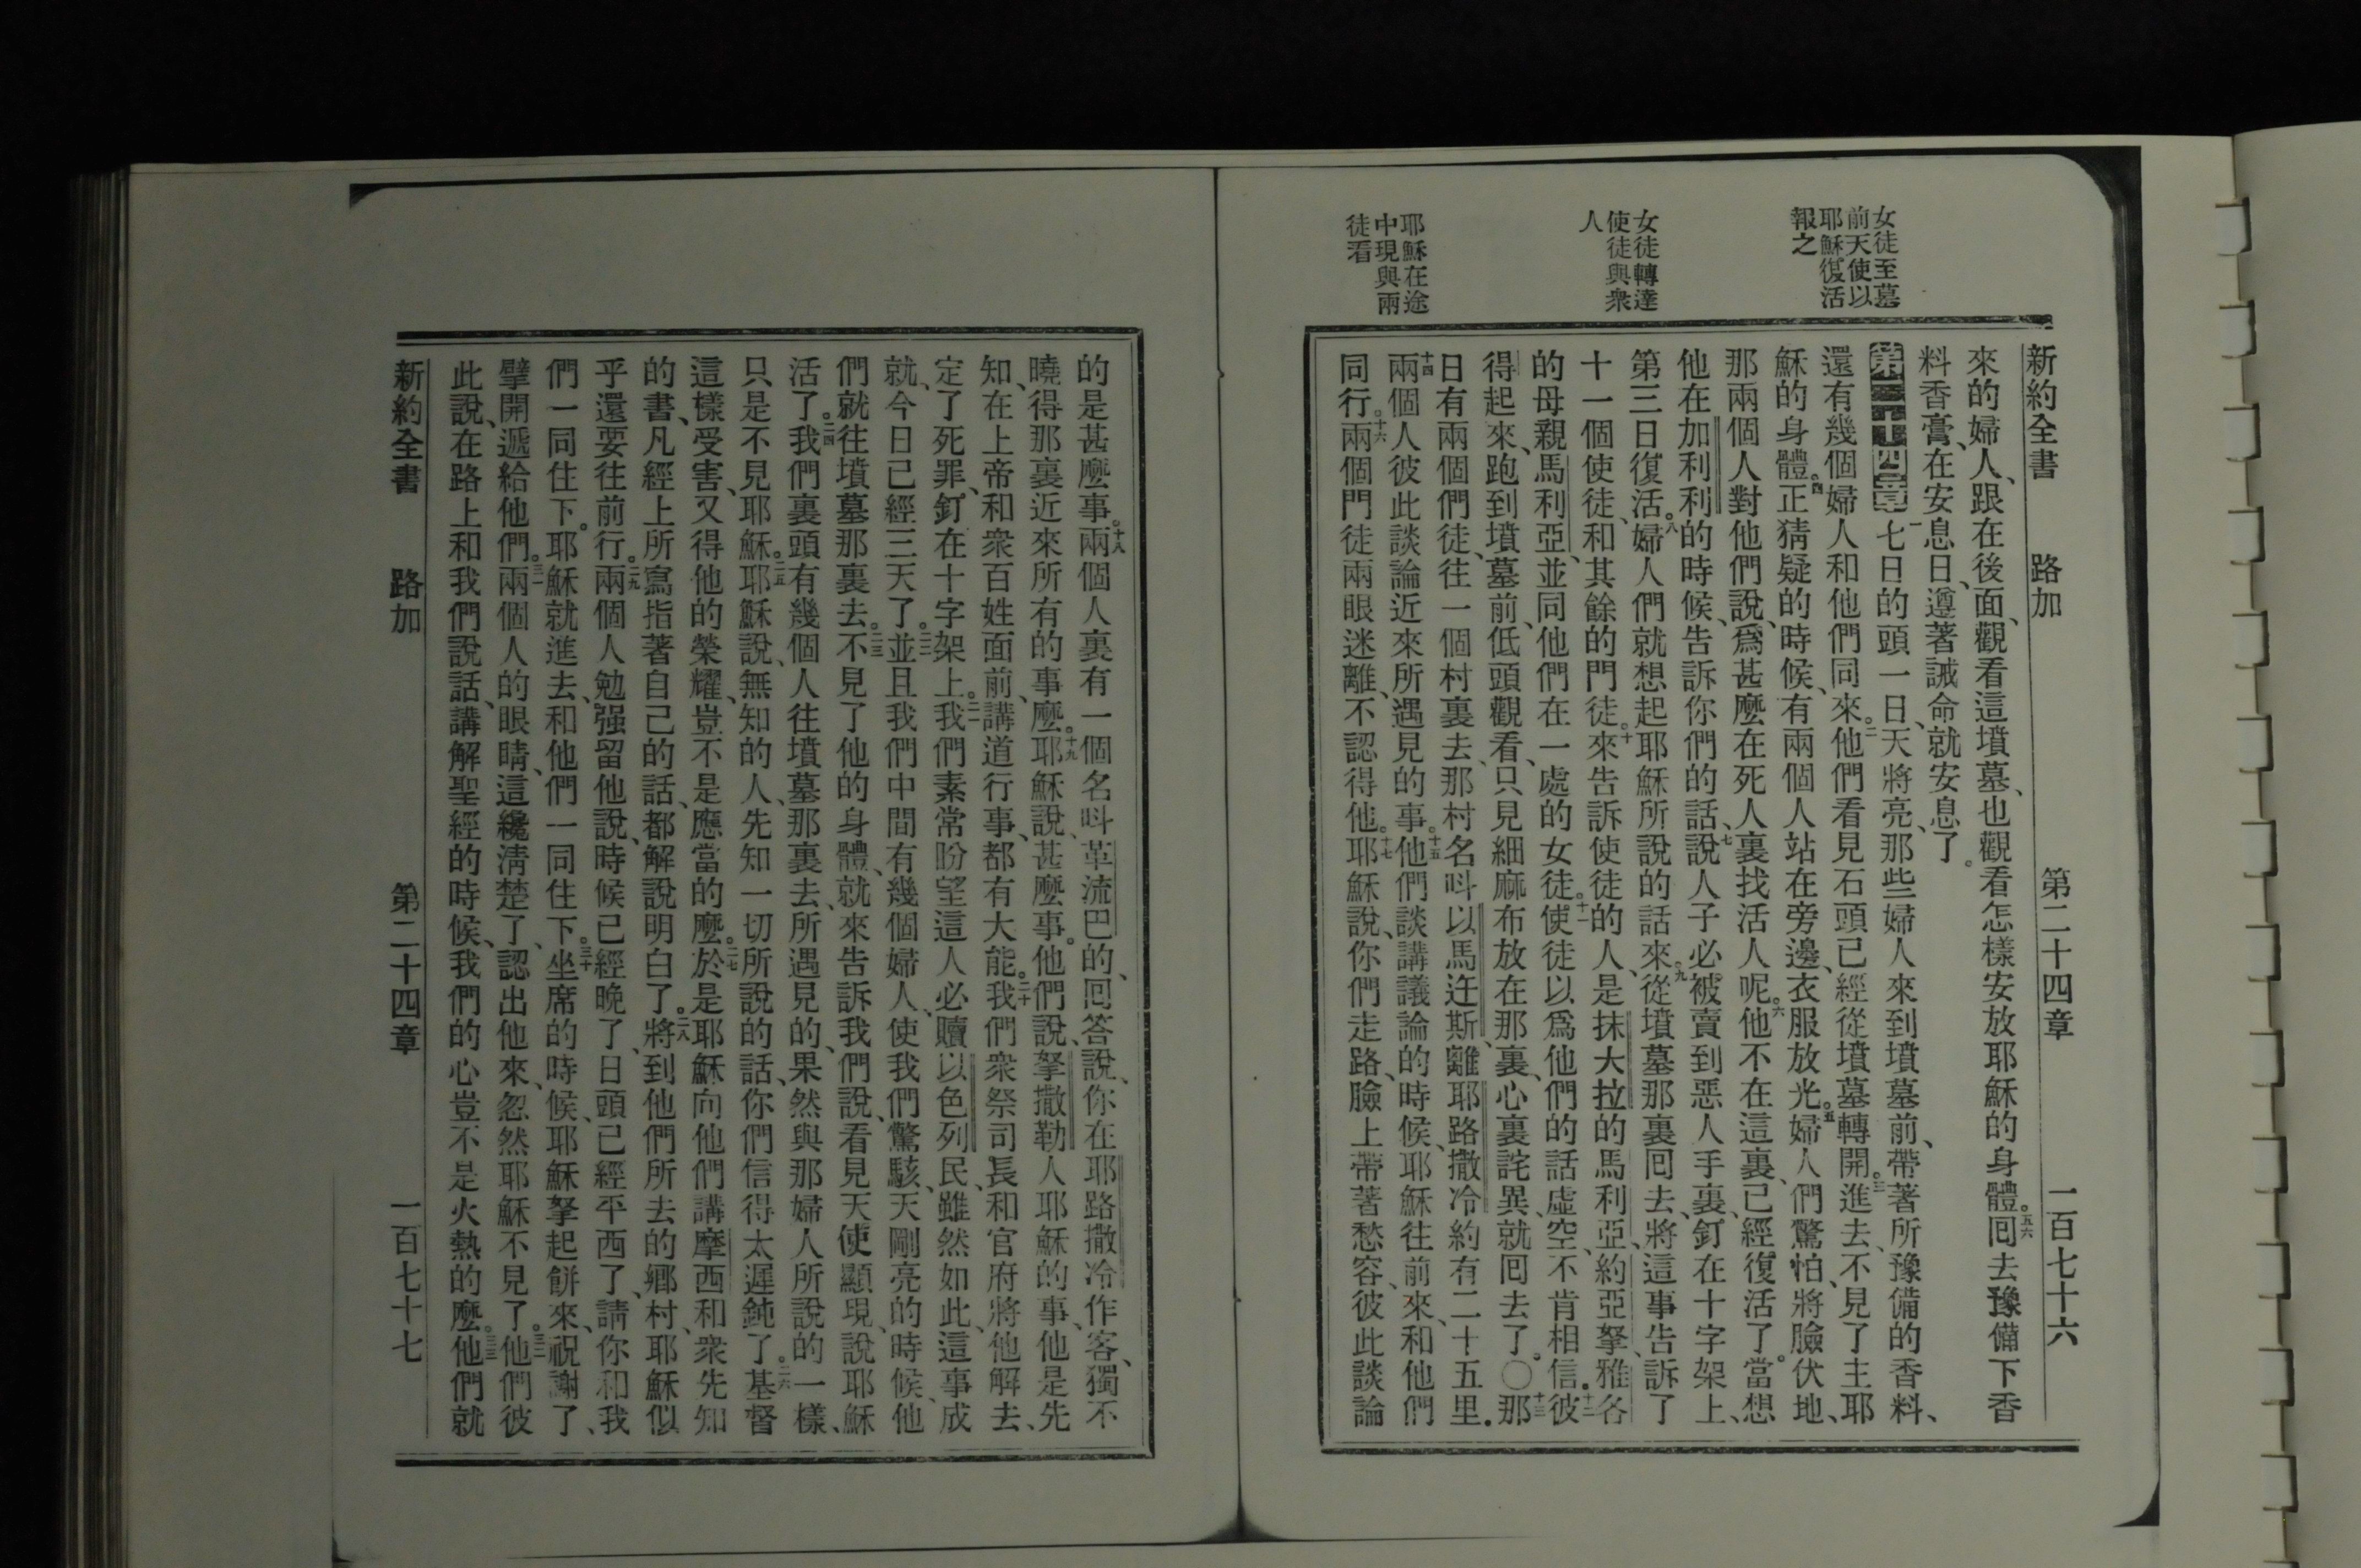 女徒至墓
前天使以
耶穌復活
報之
女徒轉達
使徒與衆
人
耶穌在途
中現與兩
徒看
新約全書 路加 第二十四章 一百七十六
來的婦人、跟在後面、觀看這墳墓、也觀看怎樣安放耶穌的身體。五六回去豫備下香
料香膏、在安息日、遵著誡命就安息了。
第二十四章 一七日的頭一日、天將亮、那些婦人來到墳墓前、帶著所豫備的香料、
還有幾個婦人和他們同來。二他們看見石頭已經從墳墓轉開。三進去、不見了主耶
穌的身體。四正猜疑的時候、有兩個人站在旁邊、衣服放光。五婦人們驚怕、將臉伏地、
那兩個人對他們說、爲甚麼在死人裏找活人呢。六他不在這裏、已經復活了。當想
他在加利利的時候、告訴你們的話、七說人子必被賣到惡人手裏、釘在十字架上、
第三日復活。八婦人們就想起耶穌所說的話來。九從墳墓那裏回去、將這事告訴了
十一個使徒、和其餘的門徒。十來告訴使徒的人、是抹大拉的馬利亞、約亞拏、雅各
的母親馬利亞、並同他們在一處的女徒。十一使徒以爲他們的話虛空、不肯相信。十二彼
得起來、跑到墳墓前、低頭觀看、只見細麻布放在那裏、心裏詫異、就回去了。〇十三那
日有兩個門徒、往一個村裏去、那村名呌以馬迕斯、離耶路撒冷約有二十五里。
十四兩個人彼此談論近來所遇見的事。十五他們談講議論的時候、耶穌往前來、和他們
同行。十六兩個門徒兩眼迷離、不認得他。十七耶穌說、你們走路、臉上帶著愁容、彼此談論
的是甚麼事。十八兩個人裏有一個名呌革流巴的、回答說、你在耶路撒冷作客、獨不
曉得那裏近來所有的事麼。十九耶穌說、甚麼事。他們說、拏撒勒人耶穌的事、他是先
知、在上帝和衆百姓面前、講道行事、都有大能。二十我們衆祭司長和官府將他解去、
定了死罪、釘在十字架上。二一我們素常盼望這人必贖以色列民、雖然如此、這事成
就、今日已經三天了。二二並且我們中間有幾個婦人、使我們驚駭、天剛亮的時候、他
們就往墳墓那裏去。二三不見了他的身體、就來告訴我們說、看見天使顯現、說耶穌
活了。二四我們裏頭有幾個人往墳墓那裏去、所遇見的、果然與那婦人所說的一樣、
只是不見耶穌。二五耶穌說、無知的人、先知一切所說的話、你們信得太遲鈍了。二六基督
這樣受害、又得他的榮耀、豈不是應當的麼。二七於是耶穌向他們講摩西和衆先知
的書、凡經上所寫指著自己的話、都解說明白了。二八將到他們所去的鄉村、耶穌似
乎還要往前行。二九兩個人勉强留他說、時候已經晚了、日頭已經平西了、請你和我
們一同住下。耶穌就進去、和他們一同住下。三十坐席的時候、耶穌拏起餅來、祝謝了、
擘開遞給他們。三一兩個人的眼睛、這纔淸楚了、認出他來、忽然耶穌不見了。三二他們彼
此說、在路上和我們說話、講解聖經的時候、我們的心豈不是火熱的麼。三三他們就
新約全書 路加 第二十四章 一百七十七